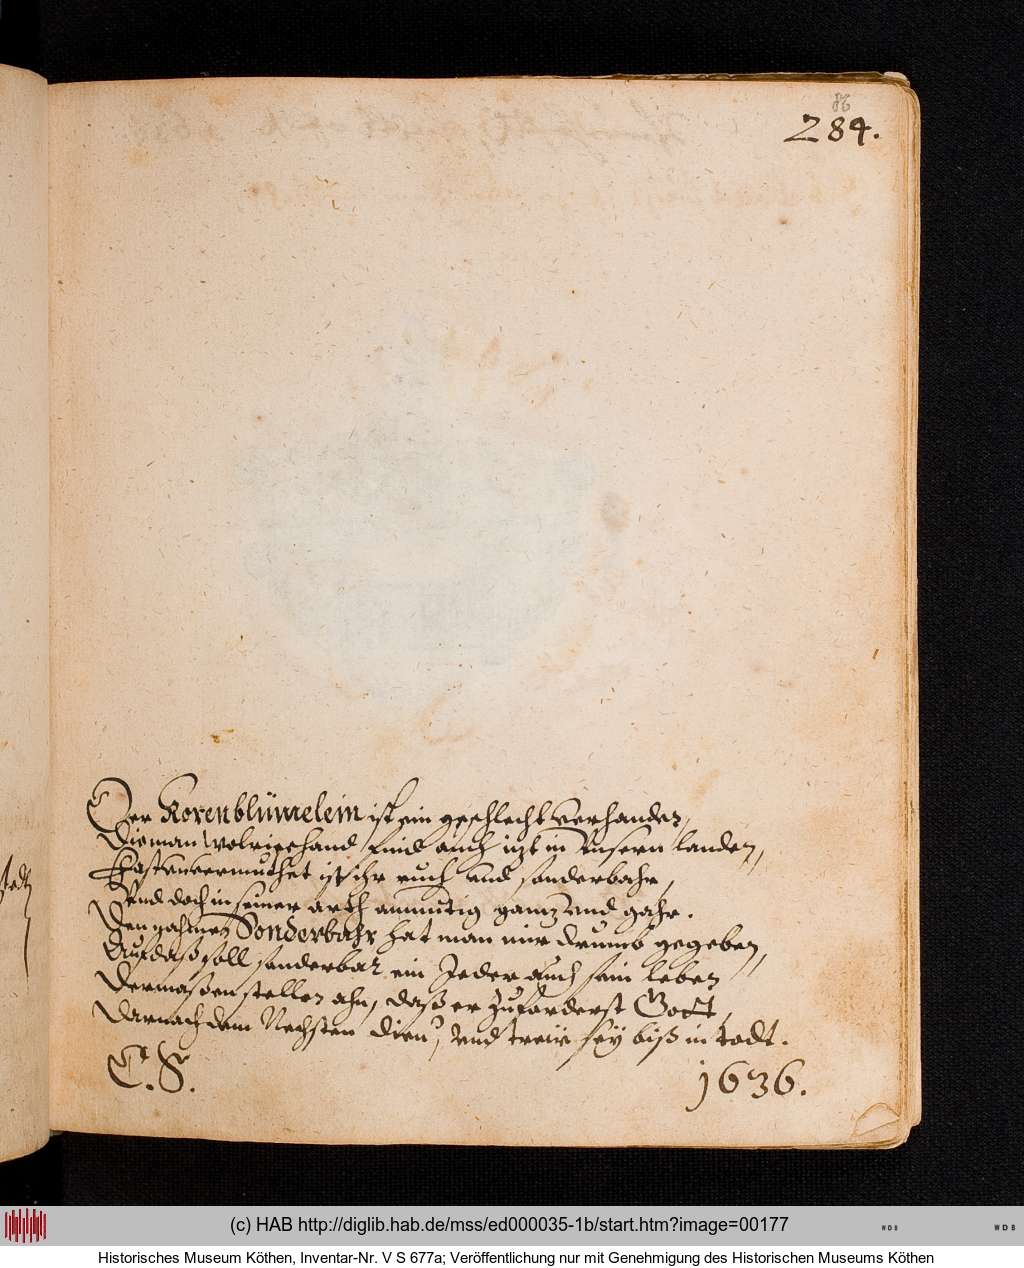 86
284.
Der Korenblümelein ist ein geschlecht verhanden,
Die man wolriechend find auch itzt in unsern landen,
Fast unvermuthet ist ihr ruch und sonderbahr,
Und doch in seiner arth anmutig gantz und gahr.
Den nahmen Sonderbahr hat man mir drumb gegeben,
Auf daß soll sonderbar ein Jeder auch sein leben
Dermaßen stellen ahn, daß er zuforderst Gott,
Darnach dem Nechsten dien, und treü sey biß in todt.
C. S. 1636.
(c) HAB http://diglib.hab.de/mss/ed000035-1b/start.htm?image=00177
WDB
WDB
Historisches Museum Köthen, Inventar-Nr. V S 677a; Veröffentlichung nur mit Genehmigung des Historischen Museums Köthen